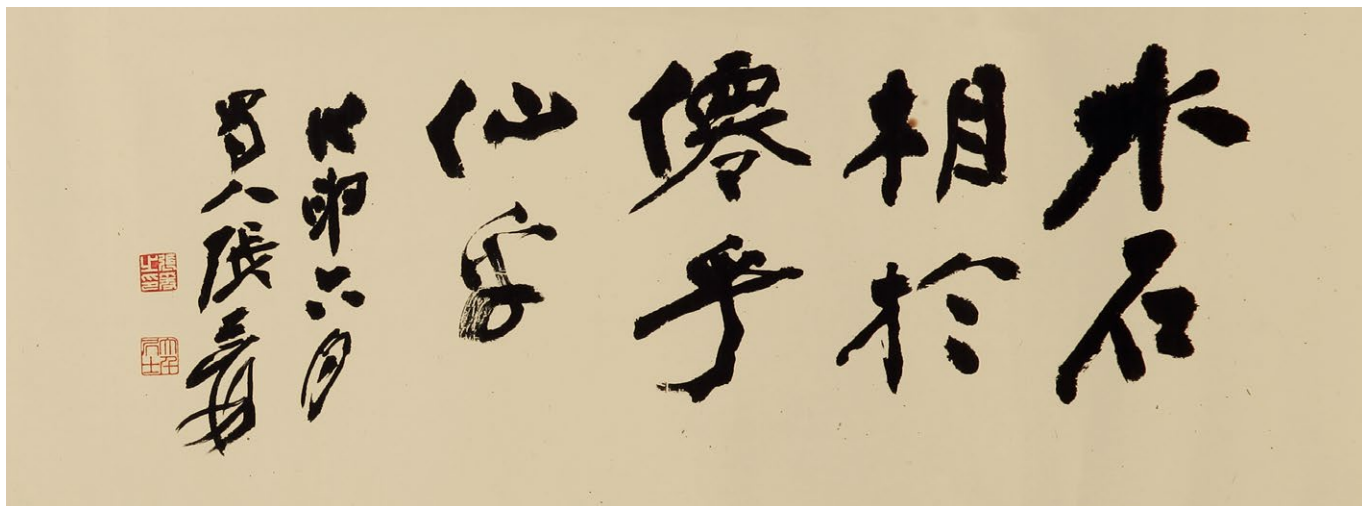 水石
相於
僊乎
仙乎
戊申六月
蜀人張爰
張爰之印
大千居士